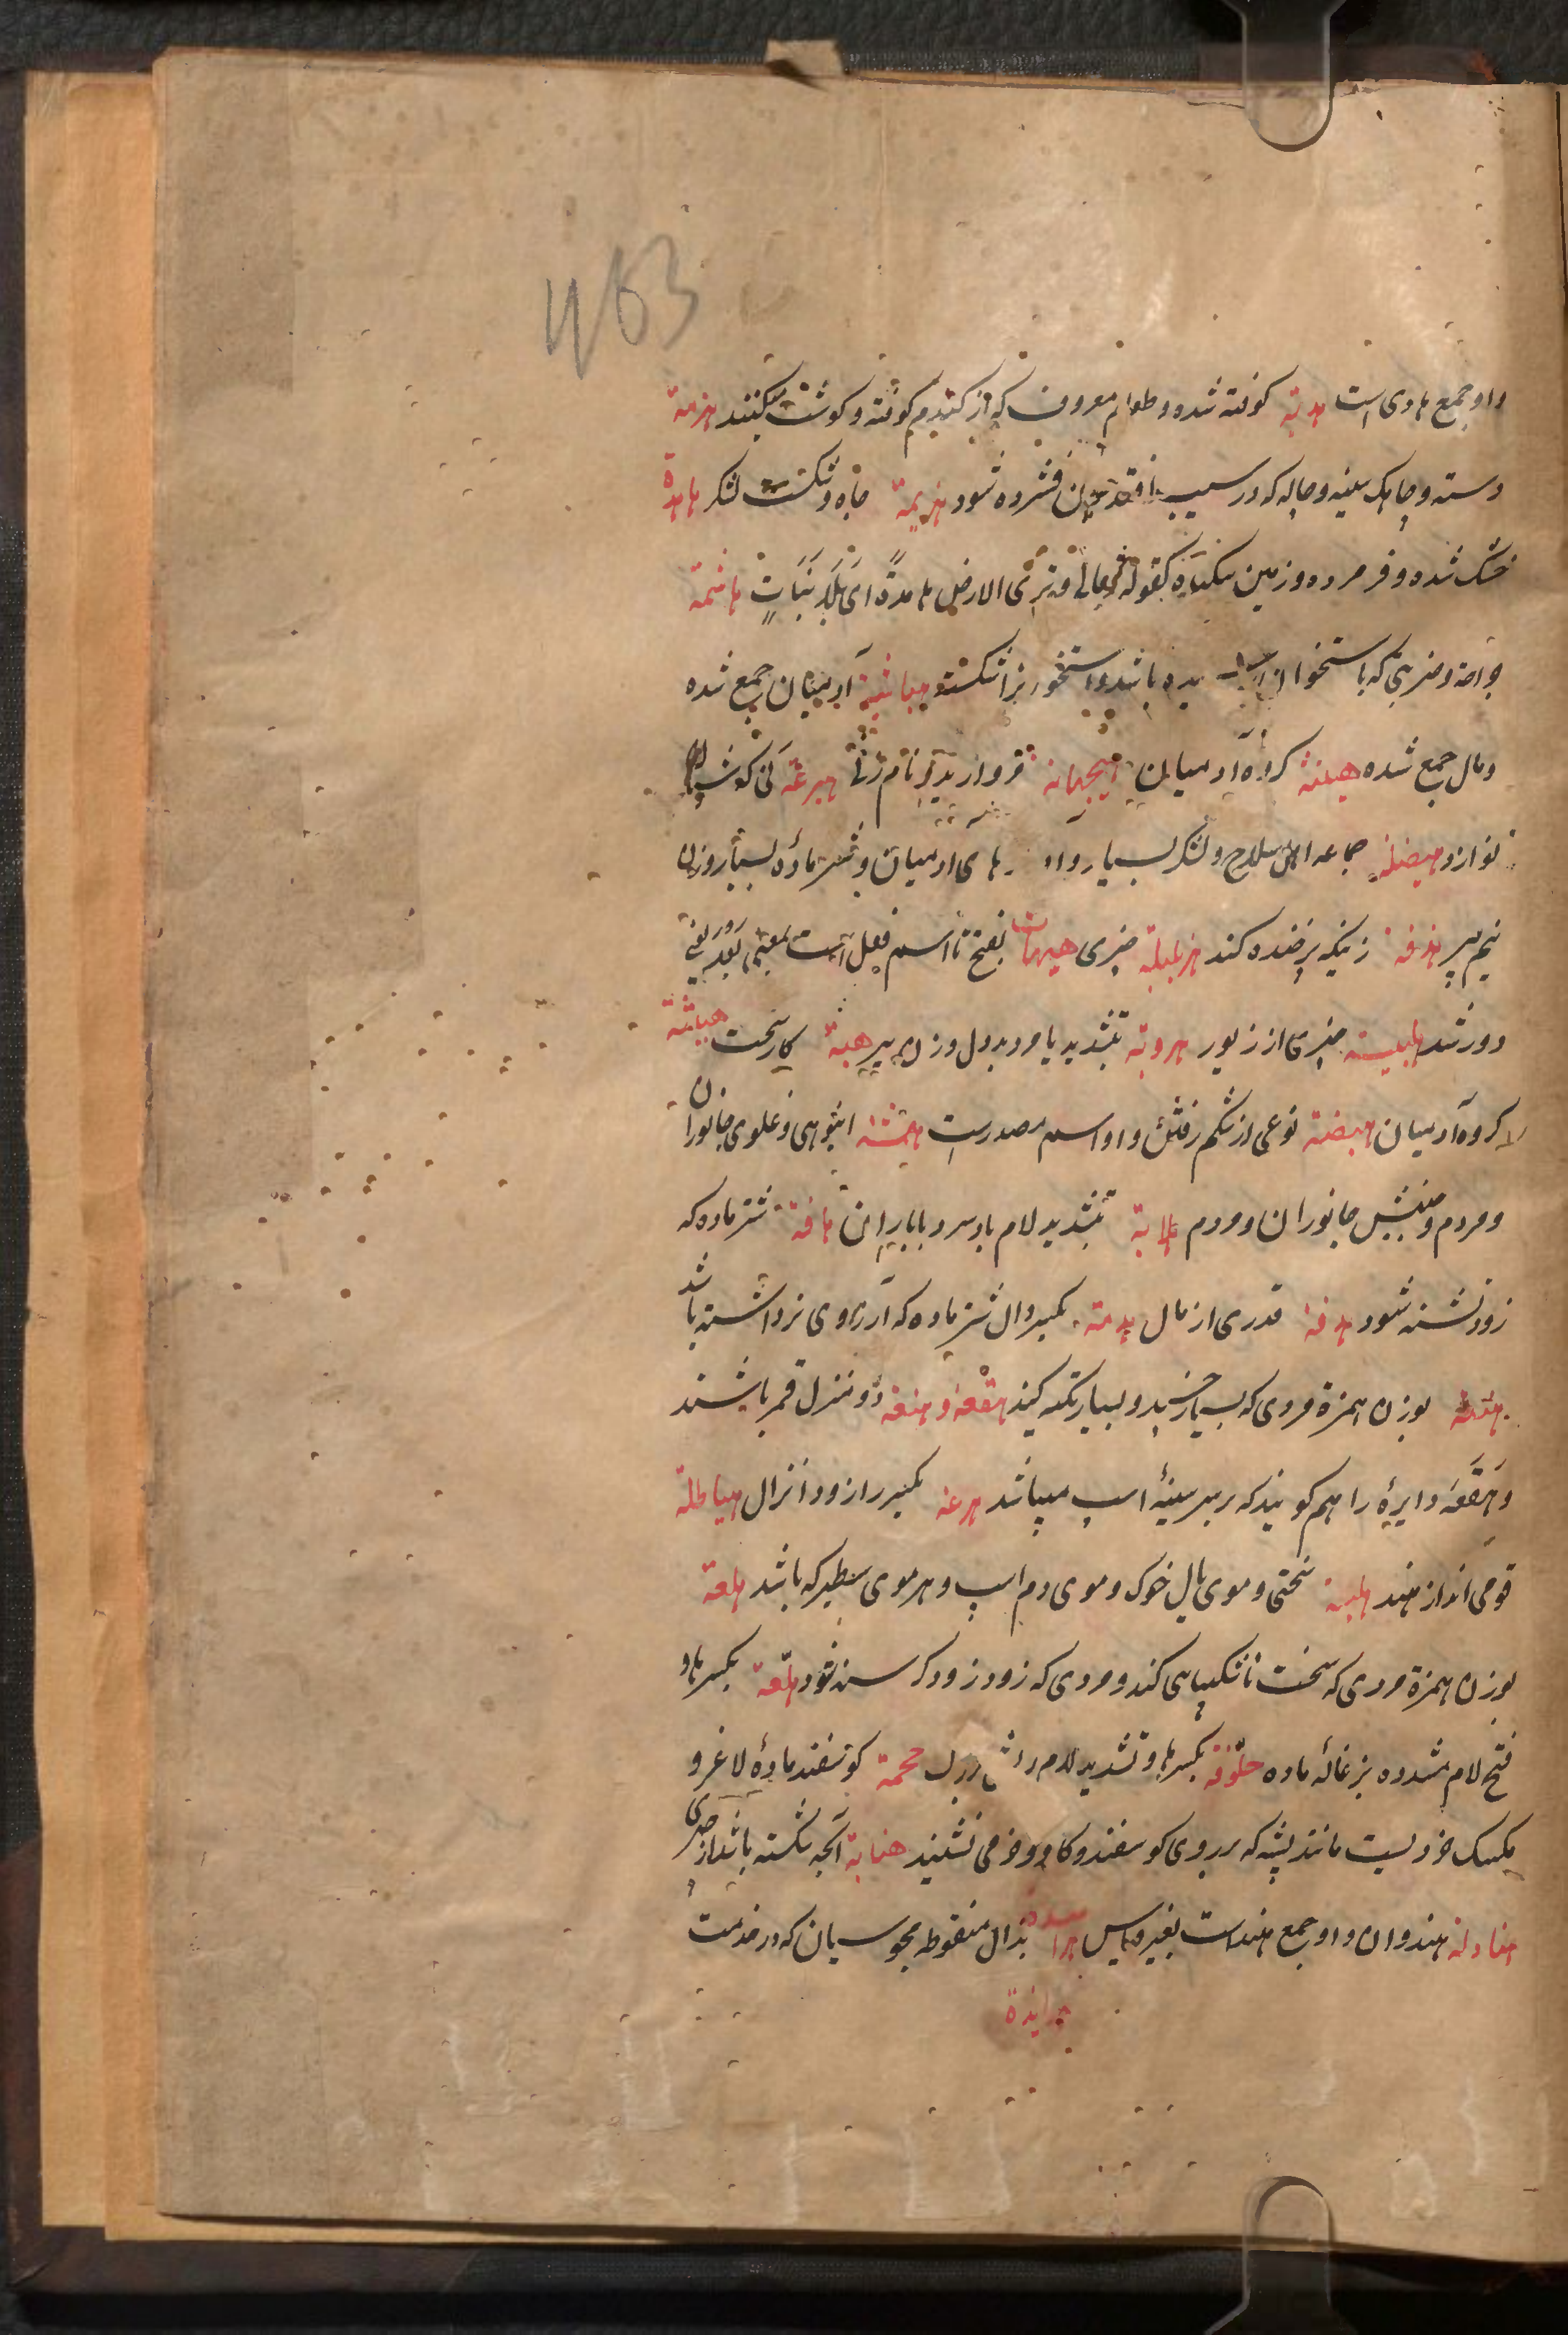 463
واو جمع هادی است هدبة کوفته شده و طعام معروف که از کندم کوفته و کوشت میکنند هزمة
دسته و چاهک سینه و چاله که در سیب افتد چون فشرده شود هزیمة چاه و شکست لشکر هامدة
خشک شده و فرمرده و زمین بیکیاه کقوله تعالی و تری الارض هامدةً ای بلا نَبَاتٍ هاشمة
جراحة و ضربتی که باستخوان رسیده باشد و استخوانرا شکسته هباشة آدمیان جمع شده
و مال جمع شده هیشة کروه آدمیان هیجمانة مروارید و نام زنی هیرعة نی که شبان
نوازد هیضلة جماعه اهل سلاح و لشکر بسیار و آوازهای ادمیان و شتر ماده بسیار و زن
نیم پیر هزفة زنیکه پر خنده کند هزبلیلة چیزی هیهات بفتح تا اسم فعل است بمعنی بَعُدَ یعنی
دور شد هلبسیسة چیزی از زیور هردبة بتشدید با مرد بد دل و زن پیر هبة کار سخت هباشة
کروه آدمیان هیضة نوعی از شکم رفتن و او اسم مصدرست همشة انبوهی و غلوی جانوران
و مردم و جنبش جانوران و مردم هلابة بتشدید لام باد سرد با باران هافة شتر ماده که
زود تشنه شود هدفة قدری از مال هدمة بکسر دال شتر ماده که آرزوی نر داشته باشد
هقعة بوزن همزة مردی که بسیار خسپد و بسیار تکیه کند هقْعة و هنعة دو منزل قمر باشند
و هَقَعَة دایرهٔ را هم کویند که بر سر سینهٔ اسپ میباشد هرعة بکسر را زود انزال هیاطلة
قومی اند از هند هلبة سختی و موی یال خوک و موی دم اسپ و هر موی سطبر که باشد هلعة
بوزن همزة مردی که سخت ناشکیبایی کند و مردی که زود زود کرسنه شود هلّعة بکسر ها و
فتح لام مشدده بزغالهٔ ماده حلّوفة بکسر ها و تشدید لام ریش بزرک همجة کوسفند مادهٔ لاغر و
مکسک خردیست مانند پشه که بر روی کوسفند و کاو و خر می نشیند هنابة آنچه شکسته باشد از چیزی
هنادلة هندوان و او جمع هنداست بغیر قیاس هرابذة بذال منقوطه مجوسیان که در خدمت
هرابذة